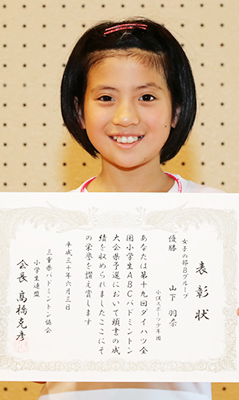 表彰状
女子の部Bグループ
優勝
小俣スポーツ少年団
山下羽奈
あなたは第十九回ダイハツ全
国小学生ABCバドミントン
大会県予選において頭書の成
績を収められましたここにそ
の栄誉を讃え賞します
平成三十年六月三日
三重県バドミントン協会
小学生連盟
会長 髙橋克彦